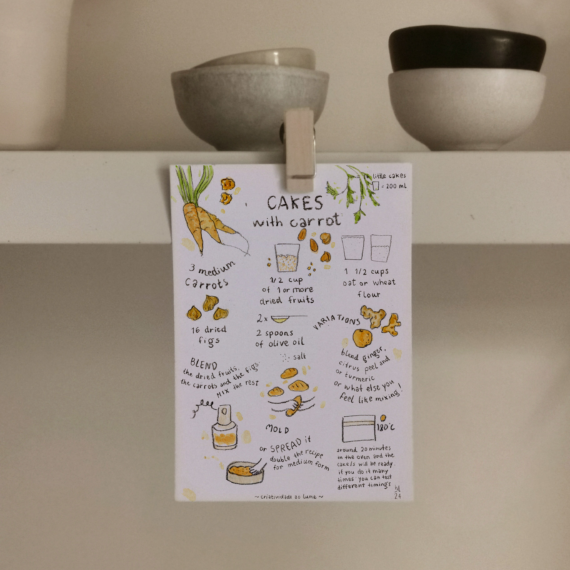 little cakes
= 200 mL
CAKES
with carrot
3 medium
carrots
1/2 cup
of 1 or more
dried fruits
1 1/2 cups
oat or wheat
flour
16 dried
figs
2x
2 spoons
of olive oil
salt
VARIATIONS
blend ginger,
citrus peel and
or turmeric
or what else you
feel like mixing!
BLEND
the dried fruits,
the carrots and the figs.
MIX the rest
MOLD
or SPREAD it
double the recipe
for medium form
180°C
around 20 minutes
in the oven and the
cakes will be ready
if you do it many
times you can test
different timings